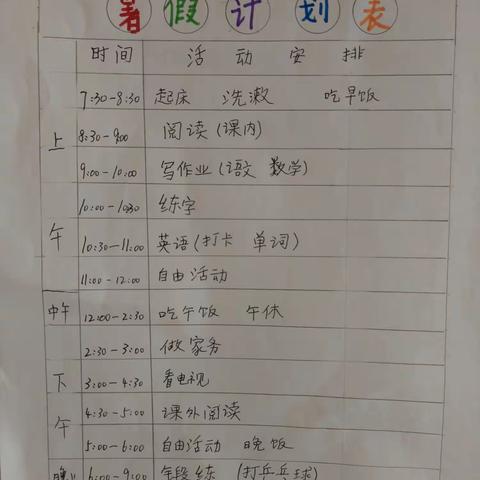 暑假计划表
时间 活动安排
上午
7:30-8:30 起床 洗漱 吃早饭
8:30-9:00 阅读(课内)
9:00-10:00 写作业(语文 数学)
10:00-10:30 练字
10:30-11:00 英语(打卡 单词)
11:00-12:00 自由活动
中午 12:00-2:30 吃午饭 午休
下午
2:30-3:00 做家务
3:00-4:30 看电视
4:30-5:00 课外阅读
5:00-6:00 自由活动 晚饭
晚 6:00-9:00 练 (打乒乓球)